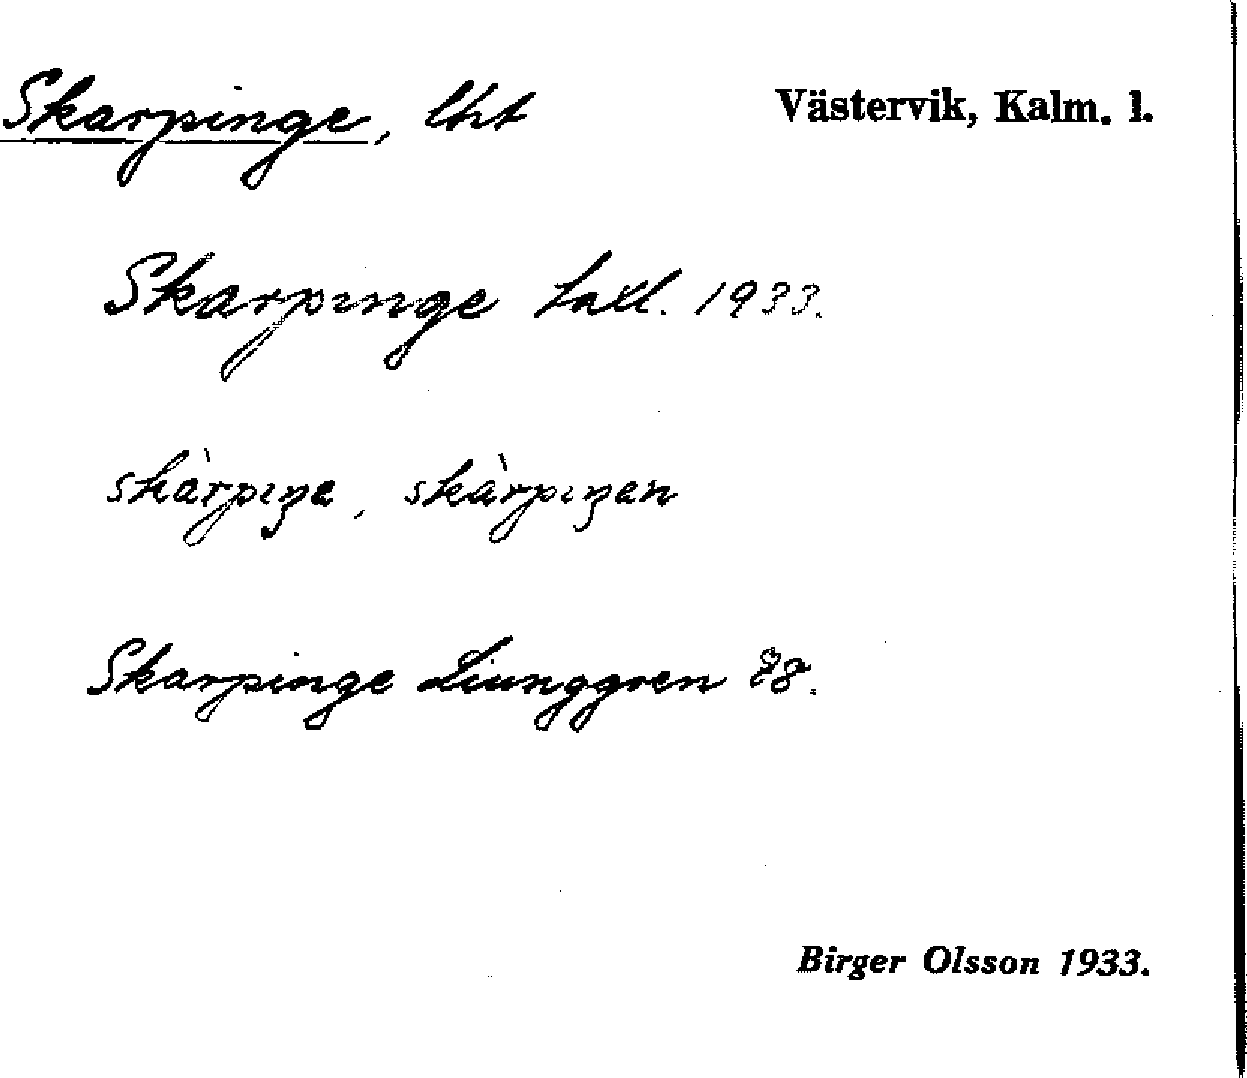 Skarpinge, lht Västervik, Kalm. l.
Skarpinge tall. 1933.
skàrpıŋe, skàrpıŋen
Skarpinge Liunggren 28.
Birger Olsson 1933.